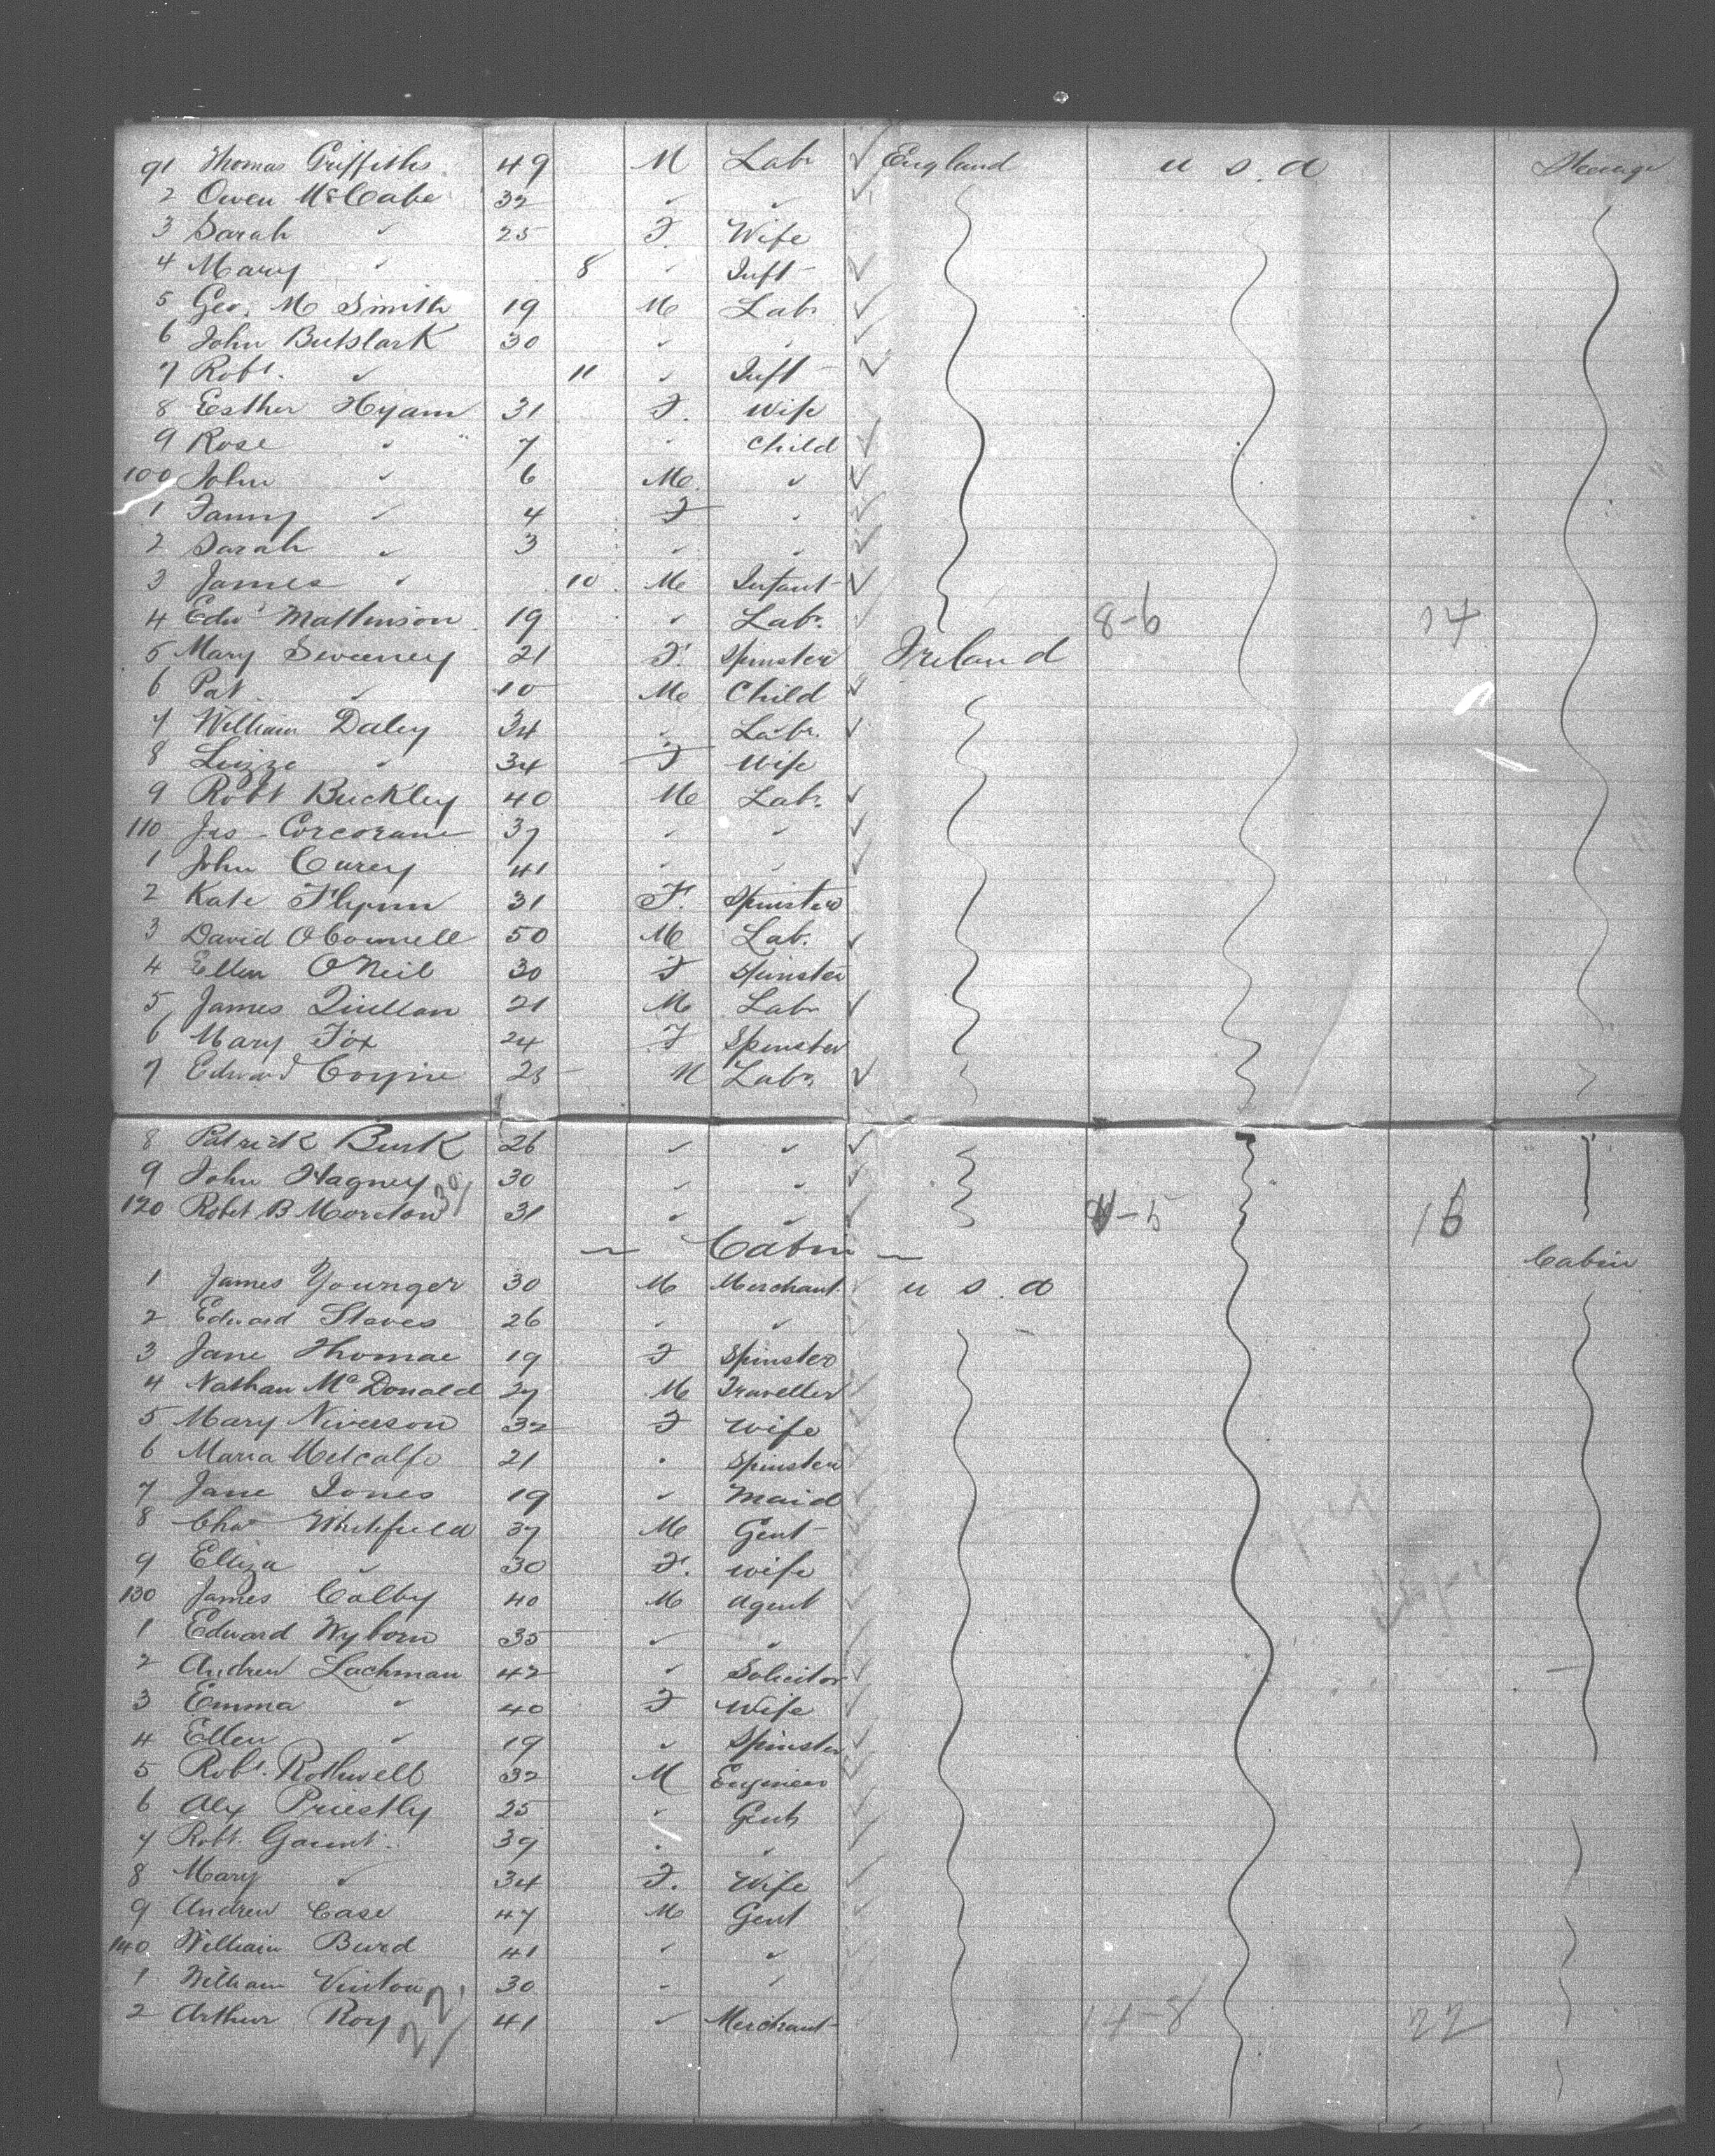 91 Thomas Griffiths 49 M Labr ✓ England U S. A Steerage
2 Owen McCabe 32 " " ✓
3 Sarah " 25 F. Wife
4 Mary " 8 " Inft ✓
5 Geo. M Smith 19 M Labr ✓
6 John 30 " " ✓
7 Robt. " 11 " Inft ✓
8 Esther Hyam 31 F. Wife
9 Rose " 7 " Child ✓
100 John " 6 M. " ✓
1 Fanny " 4 F " ✓
2 Sarah " 3 " " ✓
3 James " 10 M Infant ✓
4 Edwd Mathinson 19 " Labr. ✓ 8-6 14
5 Mary Sweeney 21 F. Spinster Ireland
6 Pat. " 10 M Child ✓
7 William Daley 34 " Labr. ✓
8 Lizze " 34 F Wife
9 Robt Buckley 40 M Labr. ✓
110 Jas - Corcorane 37 " " ✓
1 John Curey 41 " " ✓
2 Kate Flynn 31 F. Spinster
3 David OConnell 50 M Lab. ✓
4 Ellen O'Neil 30 F Spinster
5 James Quillan 21 M Labr ✓
6 Mary Fox 24 F Spinster
7 Edward Coyne 25 M Labr. ✓
8 Patrick Burk 26 " " ✓
9 John Hagney 30 " " ✓
120 Robet. B Moreton 30/ 31 " " ✓ -5 16
~ Cabin ~ Cabin
1 James Younger 30 M Merchant ✓ U S. A
2 Edward Staves 26 " " ✓
3 Jane Thomae 19 F Spinster
4 Nathan McDonald 27 M Traveller ✓
5 Mary Niverson 32 F Wife ✓
6 Maria Metcalfe 21 " Spinster ✓
7 Jane Jones 19 " Maid ✓
8 Chas Whitfield 37 M Gent ✓
9 Elliza " 30 F. Wife ✓
130 James Colby 40 M Agent ✓
1 Edward Wyborn 35 " " ✓
2 Andrew Lachman 42 " Solicitor ✓
3 Emma " 40 F Wife ✓
4 Ellen " 19 " Spinster ✓
5 Robt. Rothwell 32 M Engineer ✓
6 Alex Priestly 25 " Gent ✓
7 Robt. Gaunt. 39 " " ✓
8 Mary " 34 F. Wife ✓
9 Andrew Case 47 M Gent ✓
140 William Burd 41 " "
1 William Vinton 30 " "
2 Arthur Roy 22/ 41 " Merchant 14-8 22